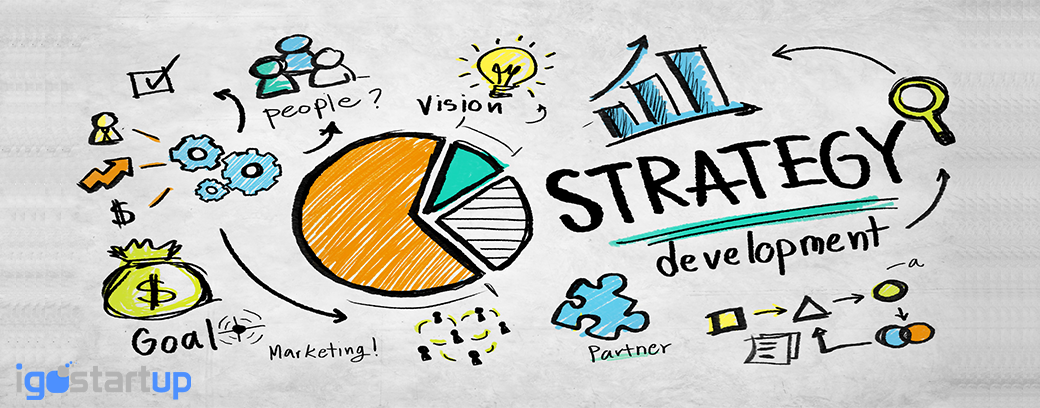 people?
Vision
STRATEGY
development
$
$
Goal
Marketing!
Partner
a
igostartup